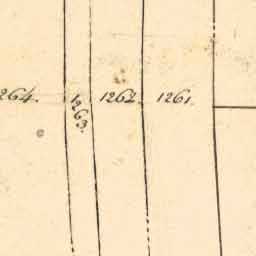 264. 1263. 1262. 1261.